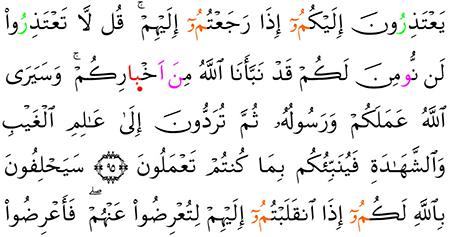 يَعْتَذِرُونَ إِلَيْكُمُۥٓ إِذَا رَجَعْتُمُۥٓ إِلَيْهِمْ ۚ قُل لَّا تَعْتَذِرُوا۟
لَن نُّومِنَ لَكُمْ قَدْ نَبَّأَنَا ٱللَّهُ مِنَ اَخْبٰ۪ارِكُمْ ۚ وَسَيَرَى
ٱللَّهُ عَمَلَكُمْ وَرَسُولُهُۥ ثُمَّ تُرَدُّونَ إِلَىٰ عَـٰلِمِ ٱلْغَيْبِ
وَٱلشَّهَـٰدَةِ فَيُنَبِّئُكُم بِمَا كُنتُمْ تَعْمَلُونَ ۝٩٥ سَيَحْلِفُونَ
بِٱللَّهِ لَكُمُۥٓ إِذَا ٱنقَلَبْتُمُۥٓ إِلَيْهِمْ لِتُعْرِضُوا۟ عَنْهُمْ ۖ فَأَعْرِضُوا۟